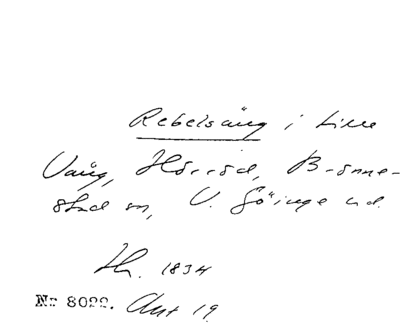 Rebelsäng i Lille
Vång, Hörröd, Brönne-
stad sn, V. Göinge hd.
Jh. 1834
Nr 8022. Akt 19